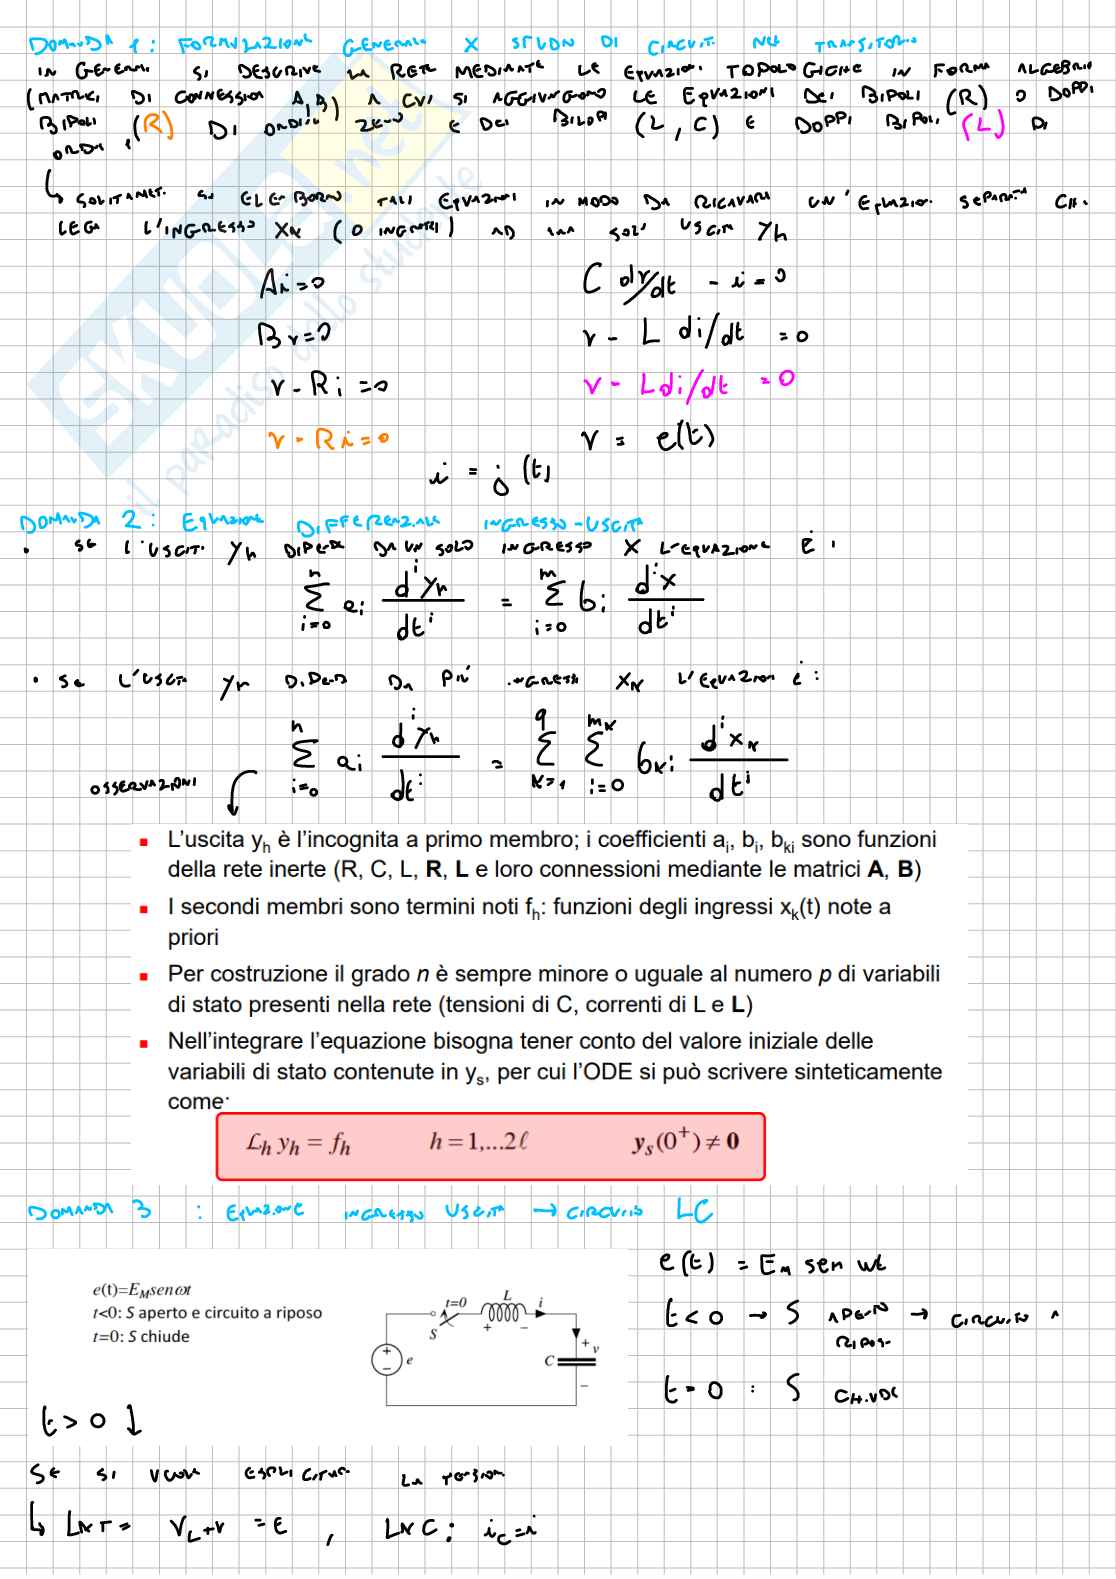 DOMANDA 1: FORMULAZIONE GENERALE X STUDIO DI CIRCUITI NEL TRANSITORIO
IN GENERALE SI DESCRIVE LA RETE MEDIANTE LE EQUAZIONI TOPOLOGICHE IN FORMA ALGEBRICA
(MATRICI DI CONNESSIONE A,B) A CUI SI AGGIUNGONO LE EQUAZIONI DEI BIPOLI (R) O DOPPI
BIPOLI (R) DI ORDINE ZERO E DEI BIPOLI (L, C) E DOPPI BIPOLI (L) DI
ORDINE 1
↳ SOLITAMENTE SI ELABORANO TALI EQUAZIONI IN MODO DA RICAVARE UN'EQUAZIONE SEPARATA CHE
LEGA L'INGRESSO Xk (O INGRESSI) AD UNA SOLA USCITA Yh
Ai=0 C dv/dt - i = 0
Bv=0 v - L di/dt = 0
v - Ri = 0 v - L di/dt = 0
v - Ri = 0 v = e(t)
i = j(t)
DOMANDA 2: EQUAZIONE DIFFERENZIALE INGRESSO-USCITA
• SE L'USCITA Yh DIPENDE DA UN SOLO INGRESSO X L'EQUAZIONE È:
n Σ i=0 ai d^i yh / dt^i = m Σ i=0 bi d^i x / dt^i
• SE L'USCITA Yh DIPENDE DA PIÙ INGRESSI Xk L'EQUAZIONE È:
n Σ i=0 ai d^i yh / dt^i = q Σ k=1 mk Σ i=0 bki d^i xk / dt^i
OSSERVAZIONI
▪ L'uscita yh è l'incognita a primo membro; i coefficienti ai, bi, bki sono funzioni
della rete inerte (R, C, L, R, L e loro connessioni mediante le matrici A, B)
▪ I secondi membri sono termini noti fh: funzioni degli ingressi xk(t) note a
priori
▪ Per costruzione il grado n è sempre minore o uguale al numero p di variabili
di stato presenti nella rete (tensioni di C, correnti di L e L)
▪ Nell'integrare l'equazione bisogna tener conto del valore iniziale delle
variabili di stato contenute in ys, per cui l'ODE si può scrivere sinteticamente
come:
ℒh yh = fh h = 1,...2ℓ ys(0+) ≠ 0
DOMANDA 3 : EQUAZIONE INGRESSO USCITA → CIRCUITO LC
e(t)=EMsenωt
t<0: S aperto e circuito a riposo
t=0: S chiude
t=0 L i
S + -
+ - e C + v -
e(t) = EM sen wt
t<0 → S APERTO → CIRCUITO A
RIPOSO
t=0 : S CHIUDE
t>0 ↓
SE SI VUOLE ESPLICITARE LA TENSIONE
↳ LKT = VL+v = e , LKC: ic=i
SKUOLA.net
il paradiso dello studente